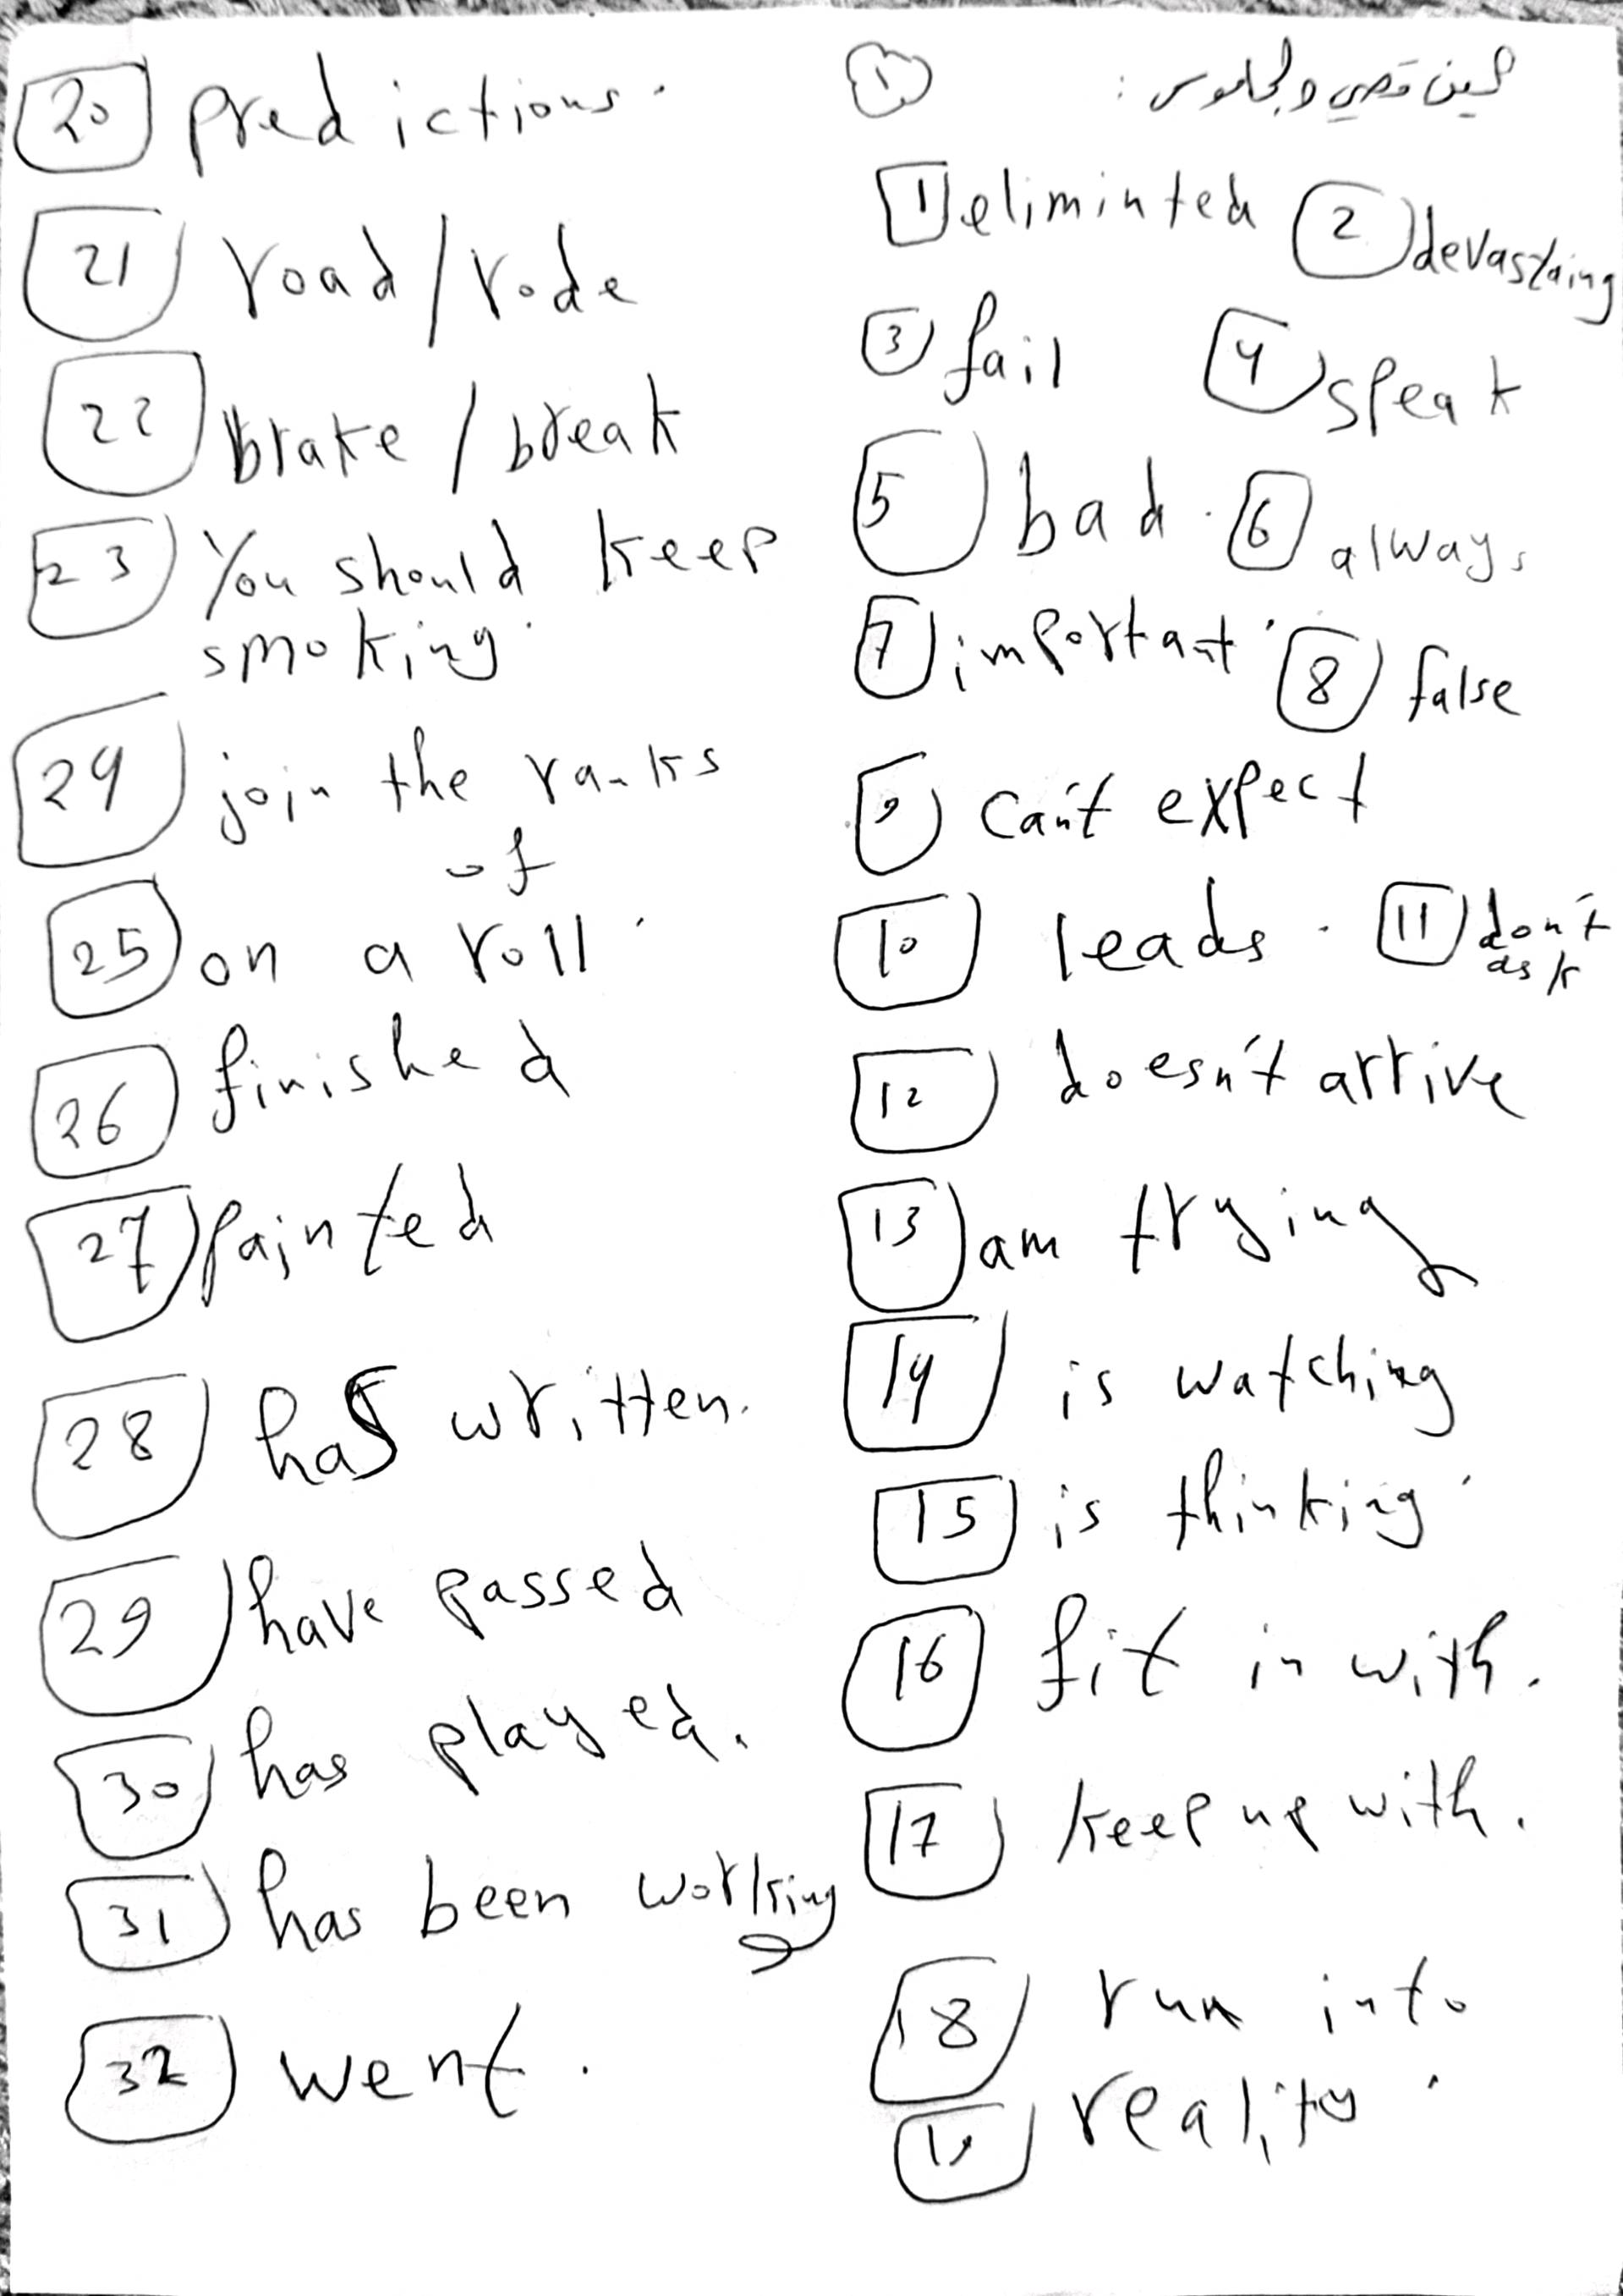 ① : حسن قصي وجاموس
1 eliminted 2 devastaing
3 fail 4 speak
5 bad . 6 always
7 important . 8 false
9 can't expect
10 leads . 11 don't
ask
12 doesn't arrive
13 am trying
14 is watching
15 is thinking .
16 fit in with .
17 keep up with .
18 run into
19 reality .
20 predictions .
21 road / rode
22 brake / break
23 You should keep
smoking .
24 join the ranks
of
25 on a roll .
26 finished
27 painted
28 has written .
29 have passed
30 has played .
31 has been working
32 went .